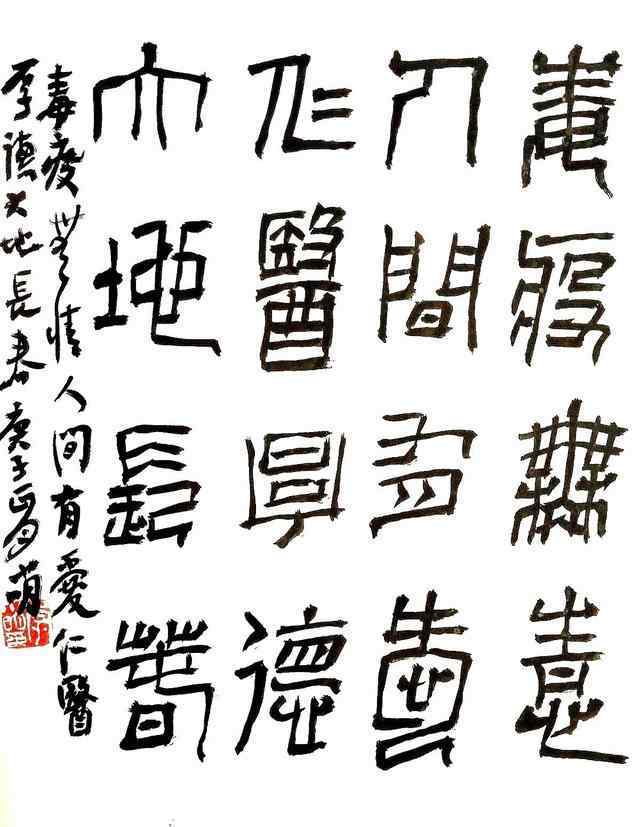 毒疫無情
人間有愛
仁醫厚德
大地長春
毒疫無情人間有愛仁醫
厚德大地長春庚子正月